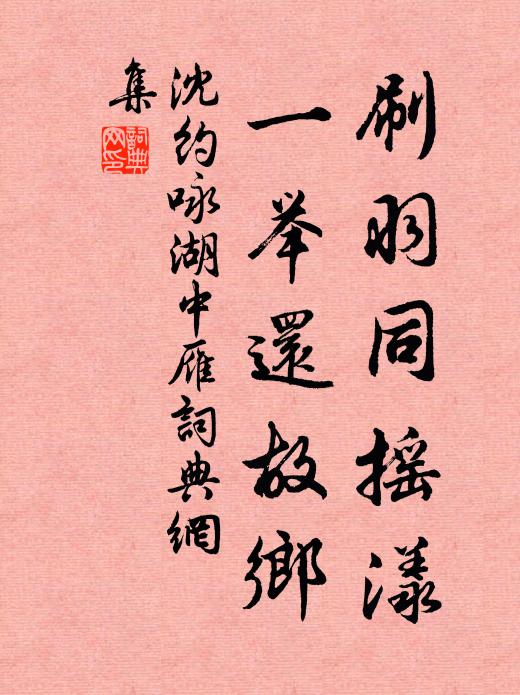 刷羽同摇漾
一举還故鄉
沈约咏湖中雁詞典網
集
詞典网印